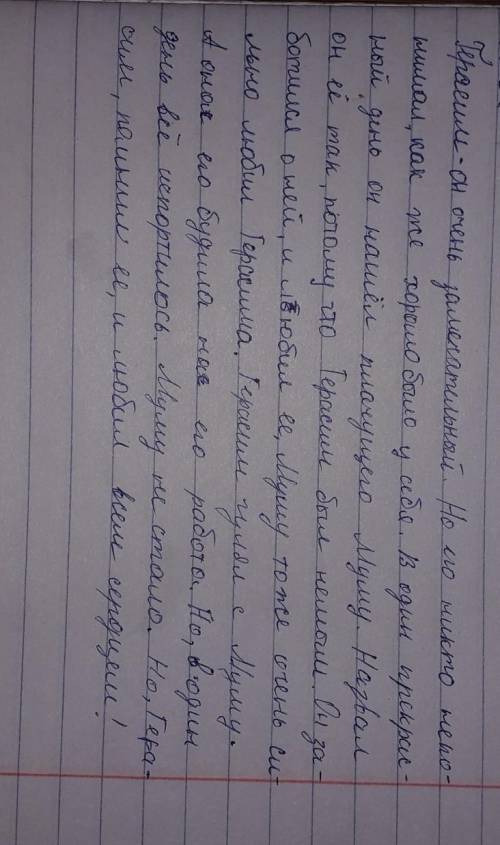 Герасим - он очень замечательный. Но его никто непо-
нимал, как же хорошо было у себя. В один прекрас-
ный день он нашёл плачущего Муму. Назвал
он её так, потому что Герасим был немым. Он за-
ботился о ней, и любил ее, Муму тоже очень си-
льно любил Герасима. Герасим гулял с Муму.
А она его будила на его работа. Но, в один
день всё испортилось. Муму не стало. Но, Гера-
сим, помнит ее, и любил всем сердцем!